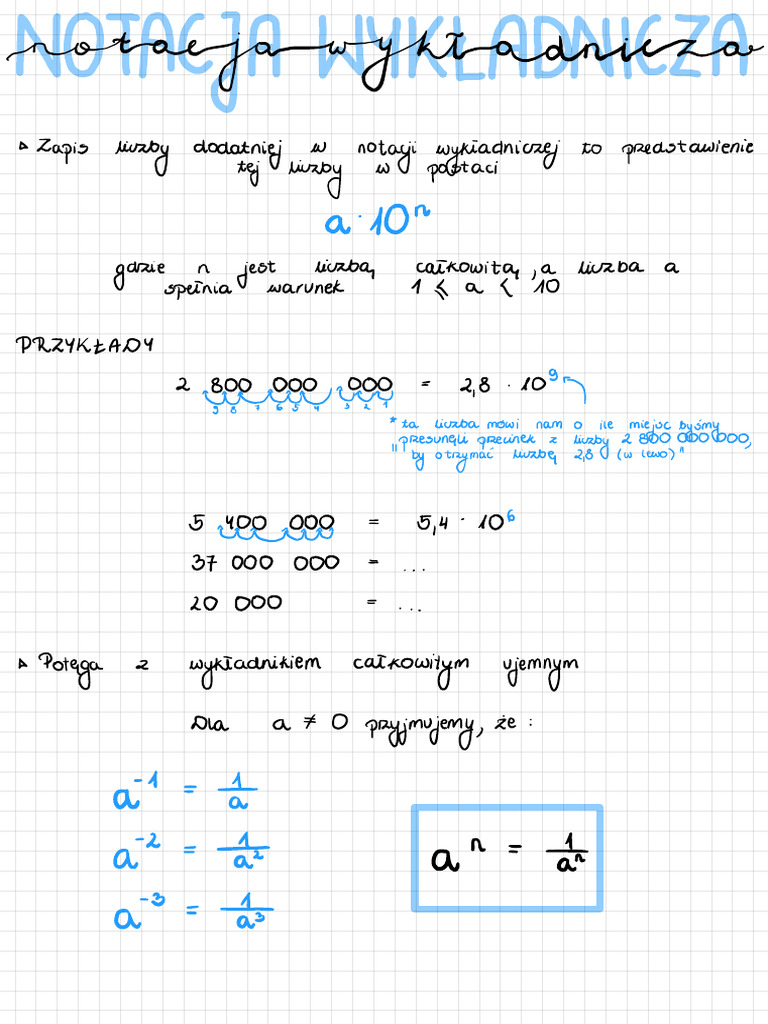 NOTACJA WYKŁADNICZA
notacja wykładnicza
▹ Zapis liczby dodatniej w notacji wykładniczej to przedstawienie
tej liczby w postaci
a · 10ⁿ
gdzie n jest liczbą całkowitą, a liczba a
spełnia warunek 1 ⩽ a < 10
PRZYKŁADY
2 800 000 000 = 2,8 · 10⁹
9 8 7 6 5 4 3 2 1
* ta liczba mówi nam o ile miejsc byśmy
przesunęli przecinek z liczby 2 800 000 000,
"by otrzymać liczbę 2,8 (w lewo)"
5 400 000 = 5,4 · 10⁶
37 000 000 = ...
20 000 = ...
▹ Potęga z wykładnikiem całkowitym ujemnym
Dla a ≠ 0 przyjmujemy, że :
a⁻¹ = 1/a
a⁻² = 1/a²
aⁿ = 1/aⁿ
a⁻³ = 1/a³